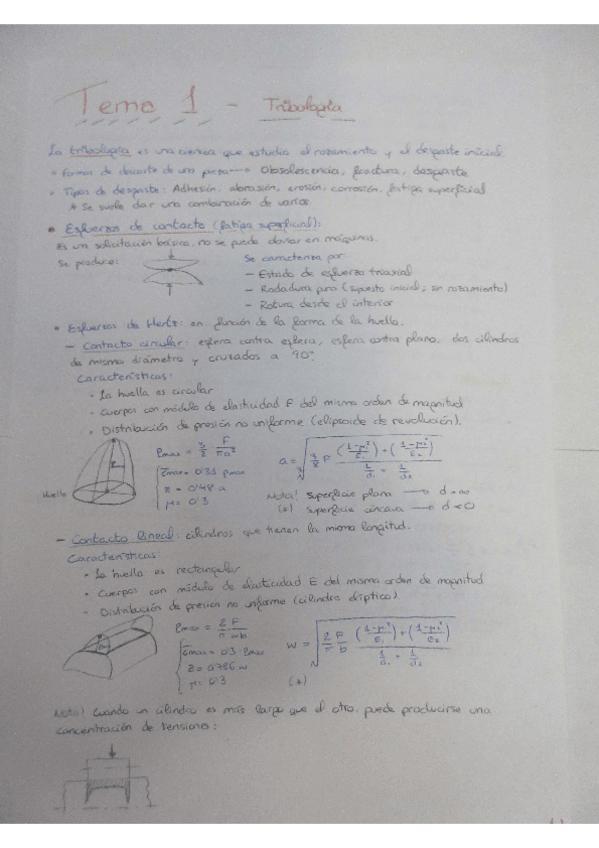 Tema 1 - Tribología
La tribología es una ciencia que estudia el rozamiento y el desgaste inicial.
• Formas de descarte de una pieza → Obsolescencia, fractura, desgaste
• Tipos de desgaste: Adhesión, abrasión, erosión, corrosión, fatiga superficial
* Se suele dar una combinación de varios
• Esfuerzos de contacto (fatiga superficial):
Es un solicitación básica, no se puede obviar en máquinas.
Se produce:
Se caracteriza por:
- Estado de esfuerzo triaxial
- Rodadura pura (supuesto inicial; sin rozamiento)
- Rotura desde el interior
• Esfuerzos de Hertz: en función de la forma de la huella.
- Contacto circular: esfera contra esfera, esfera contra plano, dos cilindros
de mismo diámetro y cruzados a 90°.
Características:
• La huella es circular
• Cuerpos con módulo de elasticidad E del mismo orden de magnitud
• Distribución de presión no uniforme (elipsoide de revolución).
Huella
Pmax = 3/2 F/πa²
τmax = 0'31 Pmax
z = 0'48 a
μ = 0'3
a = ∛(3/8 F ((1-μ₁²)/E₁) + ((1-μ₂²)/E₂) / (1/d₁ + 1/d₂))
Nota! Superficie plana → d = ∞
(*) Superficie cóncava → d < 0
- Contacto lineal: cilindros que tienen la misma longitud.
Características:
• La huella es rectangular
• Cuerpos con módulo de elasticidad E del mismo orden de magnitud
• Distribución de presión no uniforme (cilindro elíptico)
Pmax = 2/π F/wb
τmax = 0'3 Pmax
z = 0'786 w
μ = 0'3
w = √(2/π F/b ((1-μ₁²)/E₁) + ((1-μ₂²)/E₂) / (1/d₁ + 1/d₂))
(*)
Nota! Cuando un cilindro es más largo que el otro, puede producirse una
concentración de tensiones: